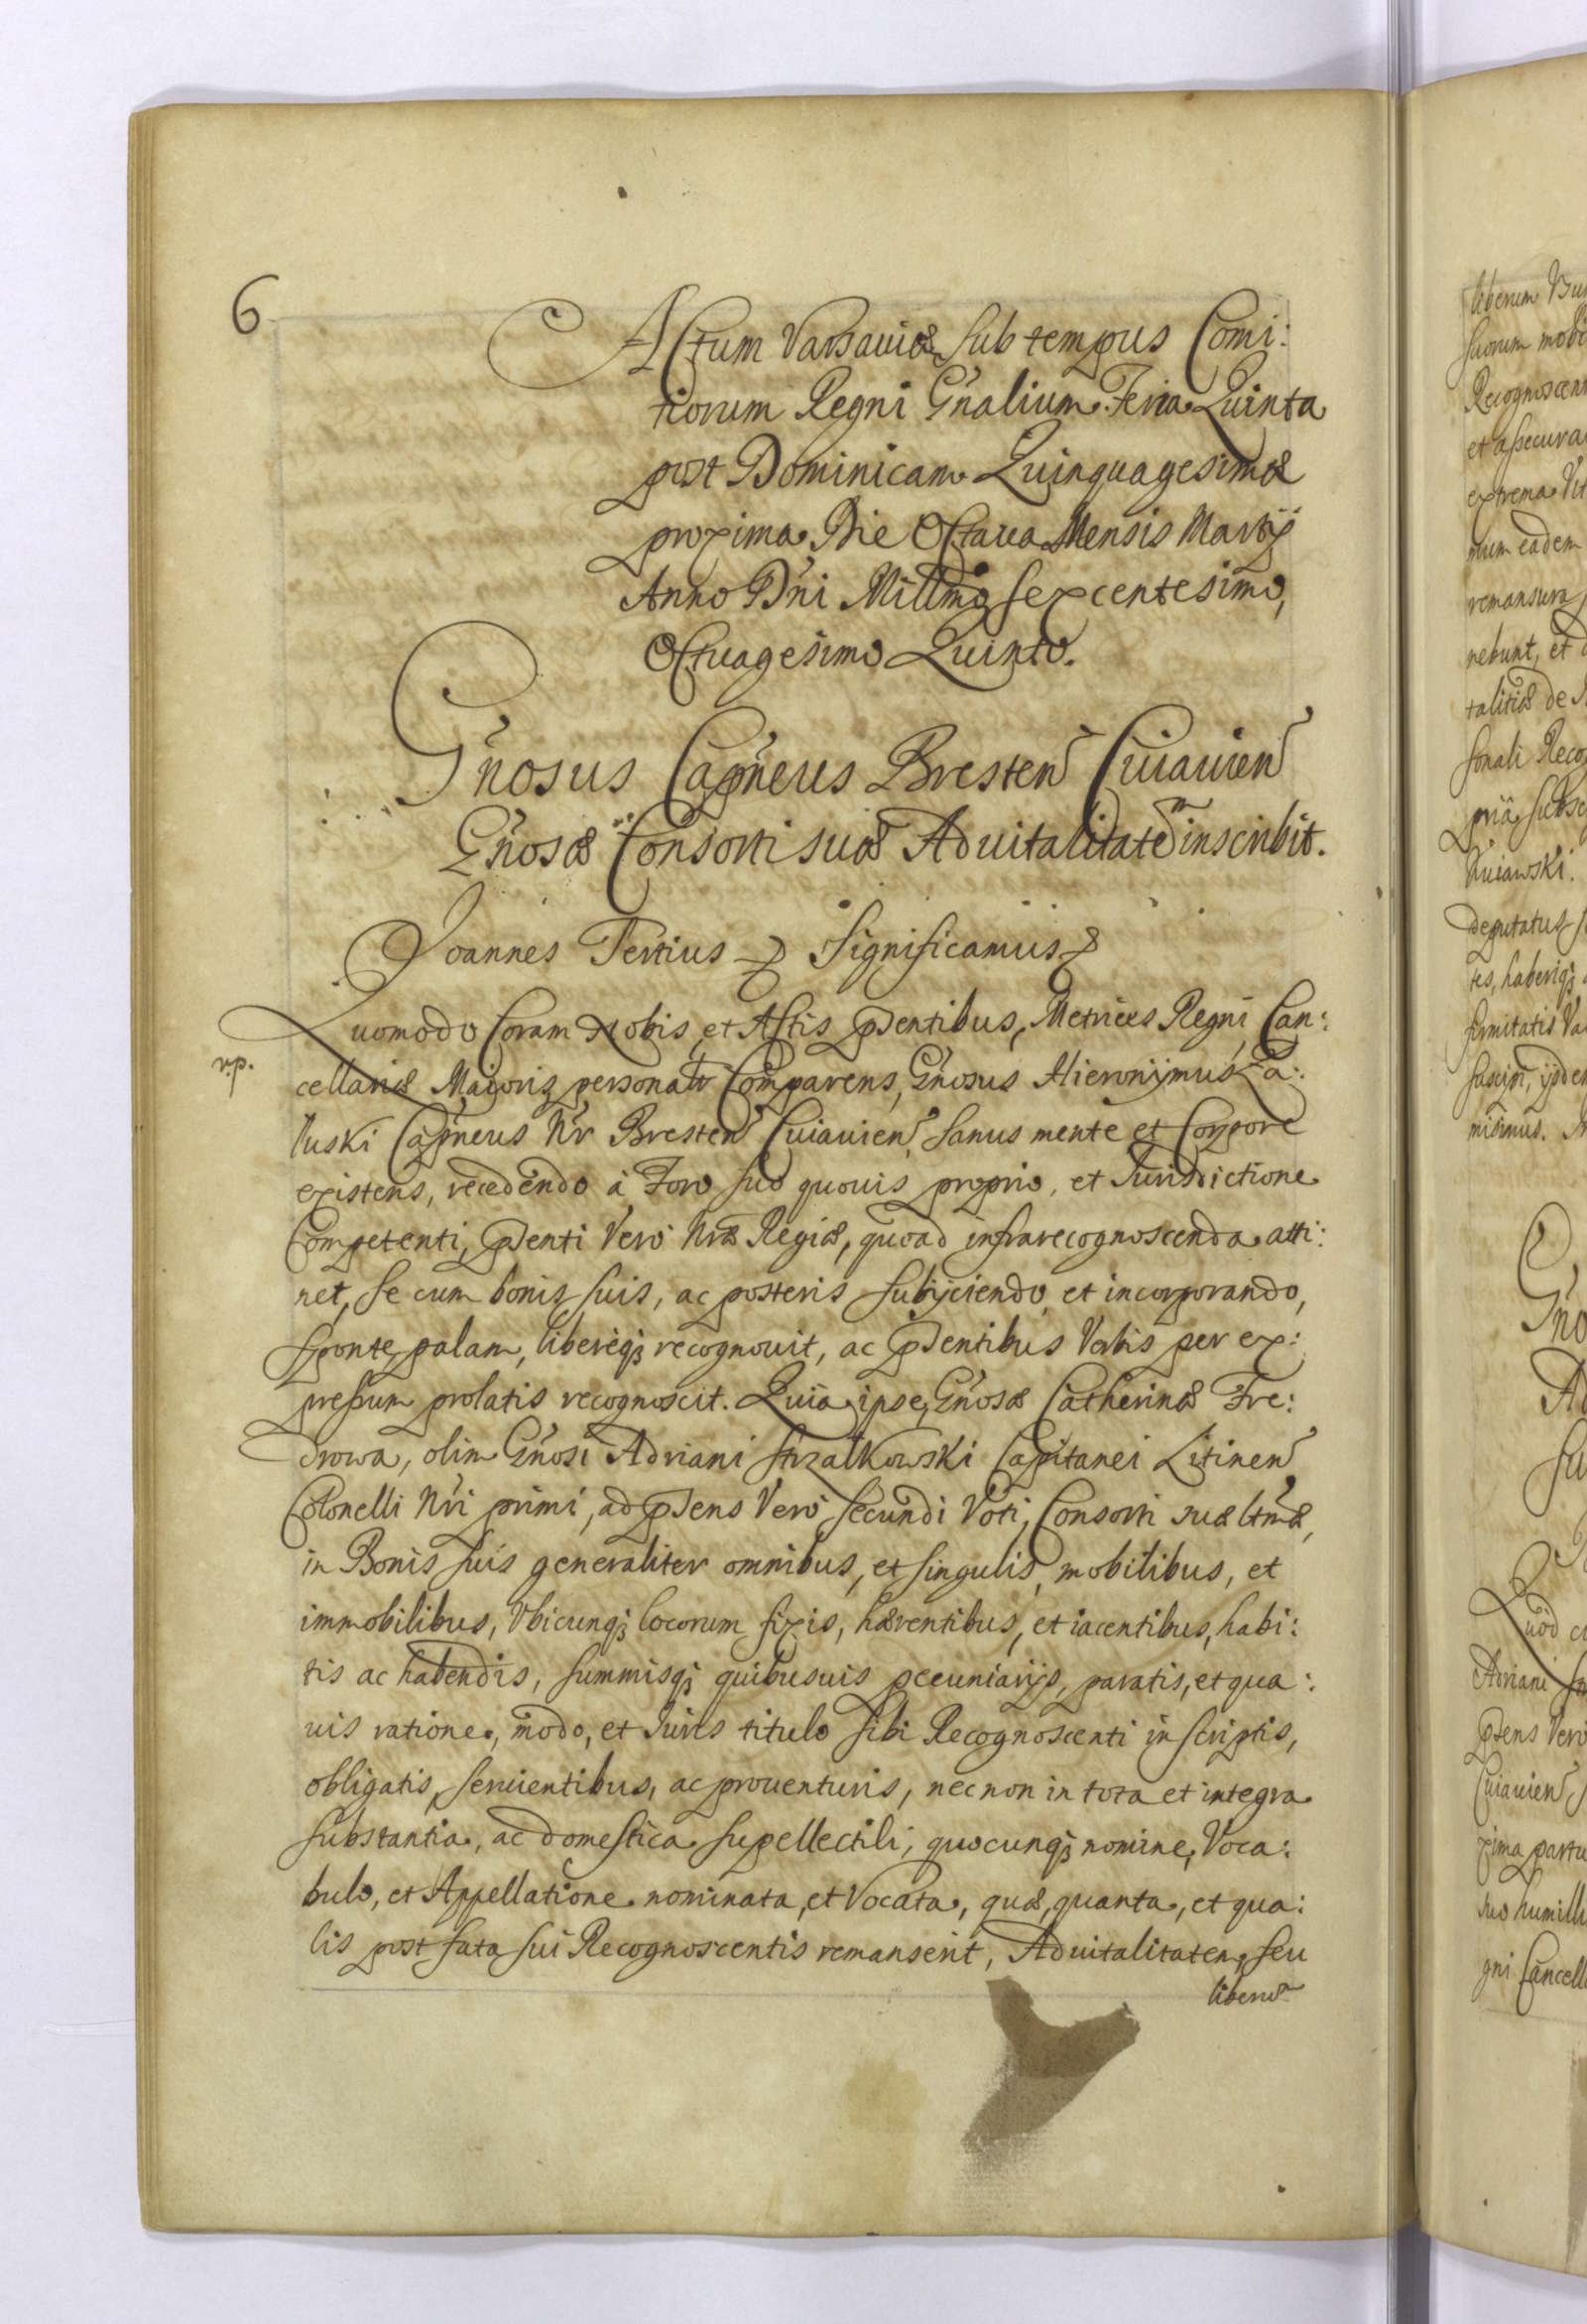 6
Actum Varsauiæ sub tempus Comi:
tiorum Regni Gn̄alium Feria Quinta
post Dominicam Quinquagesimæ
proxima Die Octaua Mensis Martij
Anno Dn̄i Millmo sexcentesimo,
Octuagesimo Quinto.
Gn̄osus Capneus Bresten Cuiauien
Gn̄osæ Consorti suæ Aduitalitatem inscribit.
Joannes Tertius Significamus
Quomodo Coram Nobis, et Actis pn̄tibus, Metrices Regni, Can:
v.p.
cellariæ Maioris personalr Comparens, Gn̄osus Hieronijmus Za:
luski Capneus Nr Bresten Cuiauien, sanus mente et Corpore
existens, recedendo à Foro suo quouis proprio, et Jurisdictione
Competenti, pn̄ti Vero Nræ Regiæ, quoad infrarecognoscenda atti:
net, se cum bonis suis, ac posteris subijciendo, et incorporando,
sponte, palam, libereq3 recognouit, ac pn̄tibus Verbis per ex:
pressum prolatis recognoscit. Quia ipse, Gn̄osæ Catherinæ Fre:
drowa, olim Gn̄osi Adriani Strzalkowski Capitanei Litinen
Colonelli Nri primi, ad pn̄s Vero secundi Voti, Consorti suæ ltmæ,
in Bonis suis generaliter omnibus, et singulis, mobilibus, et
immobilibus, Vbicunq3 locorum fixis, hærentibus, et iacentibus, habi:
tis ac habendis, summisq3 quibusuis pecuniarijs, paratis, et qua:
uis ratione, modo, et Juris titulo sibi Recognoscenti inscriptis,
obligatis, seruientibus, ac prouenturis, nec non in tota et integra
substantia, ac domestica supellectili, quocunq3 nomine, Voca:
bulo, et Appellatione nominata, et Vocata, quæ, quanta, et qua:
lis post fata sui Recognoscentis remanserit, Aduitalitatem, seu
liberum